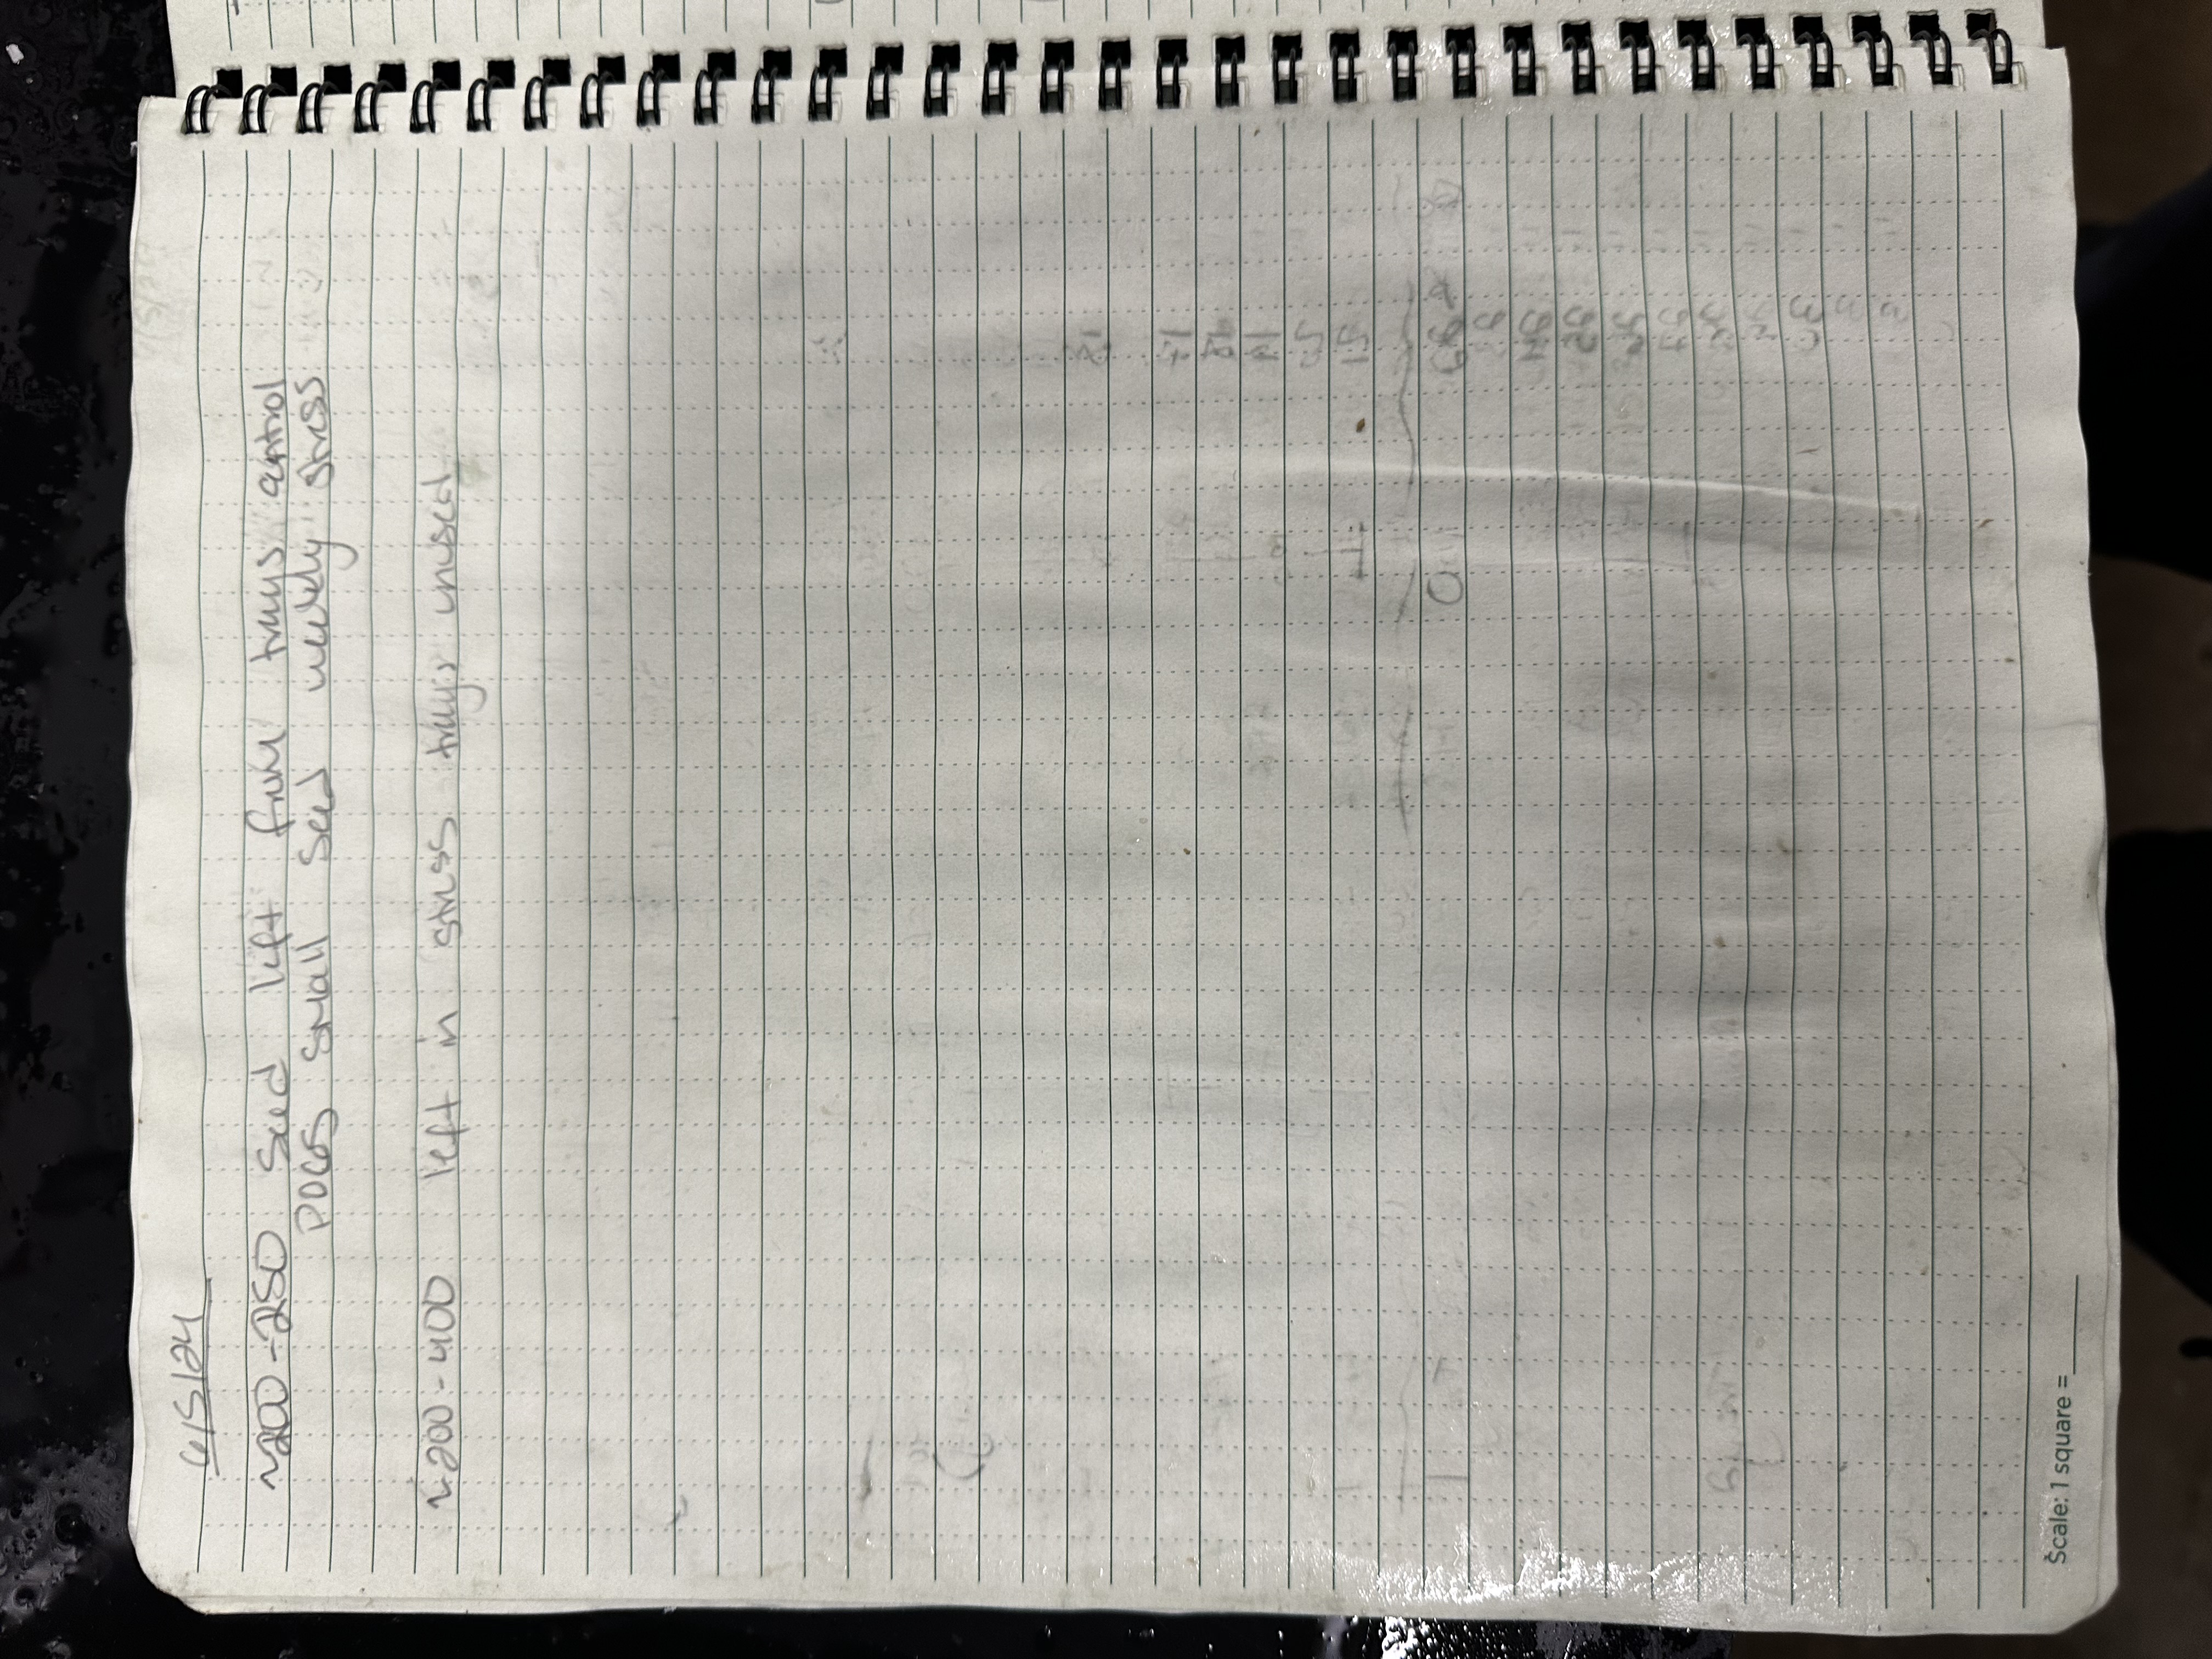 6/5/24
~200-250 seed left from trays control
POCGS small seed weekly stress
~200-400 left in stress trays unused
Scale: 1 square =